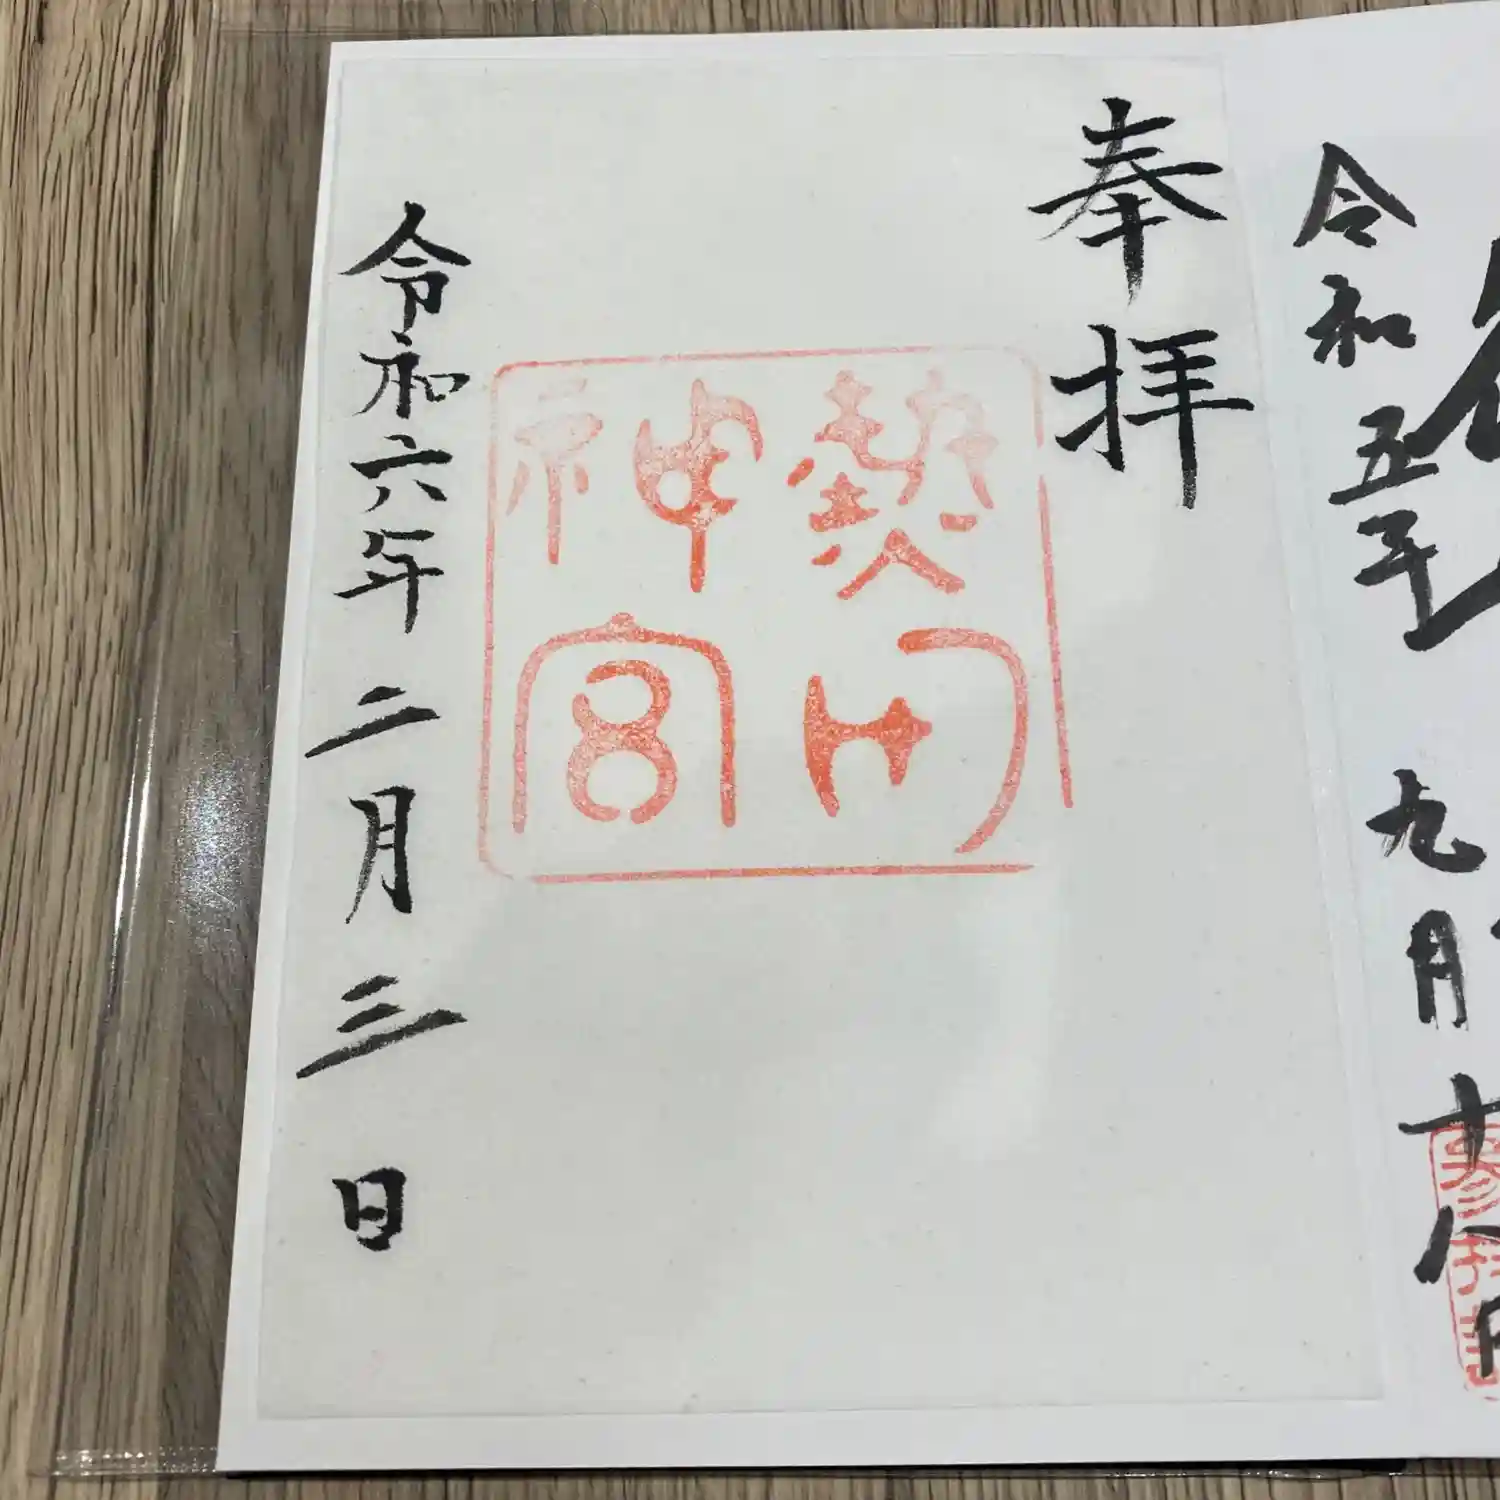 奉拝
熱田
神宮
令和六年二月三日
令和五年九月十八日